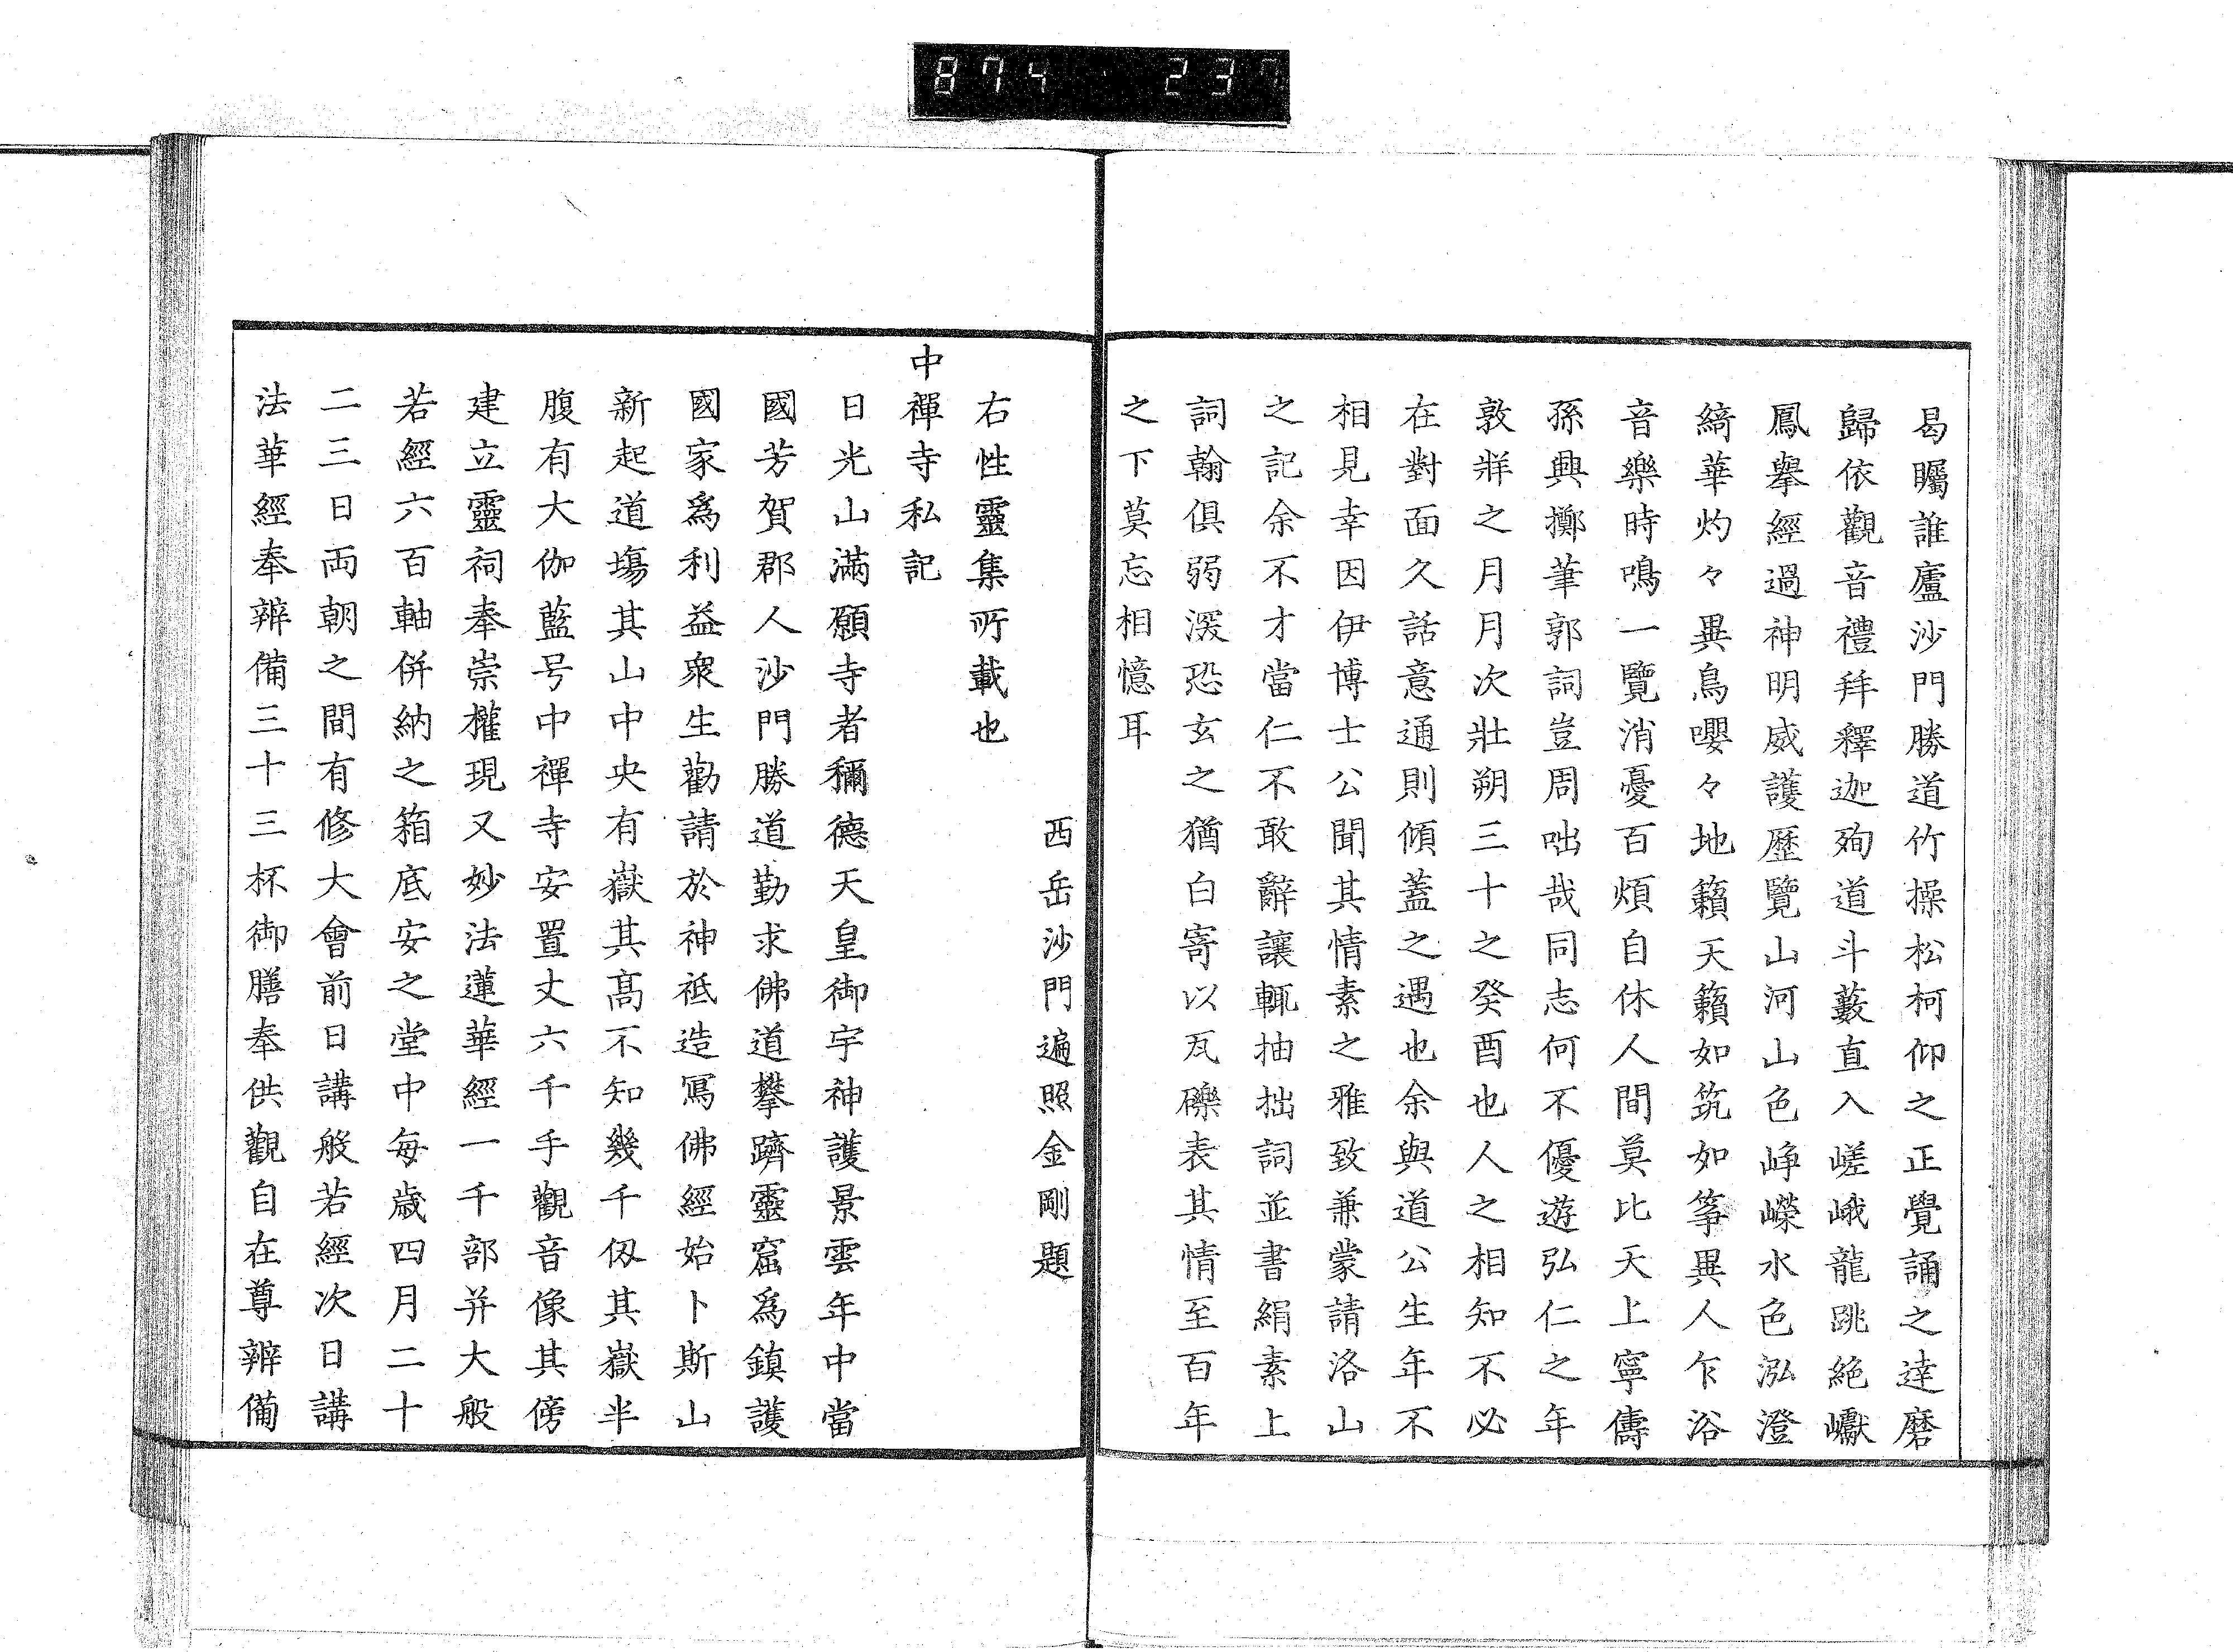 874 237
曷矚誰廬沙門勝道竹操松柯仰之正覺誦之達磨
歸依觀音禮拜釋迦殉道斗藪直入嵯峨龍跳絶巘
鳳擧經過神明威護歷覽山河山色崢嶸水色泓澄
綺華灼々異鳥嚶々地籟天籟如筑如箏異人乍浴
音樂時鳴一覽消憂百煩自休人間莫比天上寧儔
孫興擲筆郭詞豈周咄哉同志何不優遊弘仁之年
敦牂之月月次壯朔三十之癸酉也人之相知不必
在對面久話意通則傾蓋之遇也余與道公生年不
相見幸因伊博士公聞其情素之雅致兼蒙請洛山
之記余不才當仁不敢辭讓輒抽拙詞並書絹素上
詞翰俱弱深恐玄之猶白寄以瓦礫表其情至百年
之下莫忘相憶耳
西岳沙門遍照金剛題
右性靈集所載也
中禪寺私記
日光山滿願寺者稱德天皇御宇神護景雲年中當
國芳賀郡人沙門勝道勤求佛道攀躋靈窟爲鎮護
國家爲利益衆生勸請於神祇造寫佛經始卜斯山
新起道塲其山中央有嶽其高不知幾千仭其嶽半
腹有大伽藍号中禪寺安置丈六千手觀音像其傍
建立靈祠奉崇權現又妙法蓮華經一千部并大般
若經六百軸併納之箱底安之堂中每歲四月二十
二三日両朝之間有修大會前日講般若經次日講
法華經奉辨備三十三杯御膳奉供觀自在尊辨備